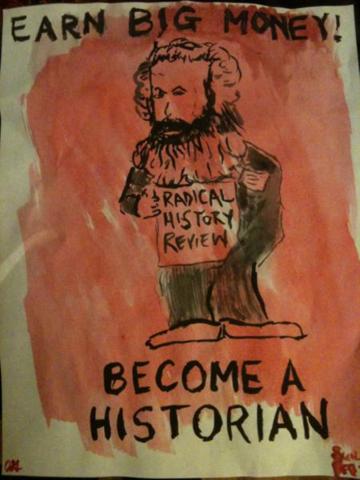 EARN BIG MONEY!
RADICAL
HISTORY
REVIEW
BECOME A
HISTORIAN